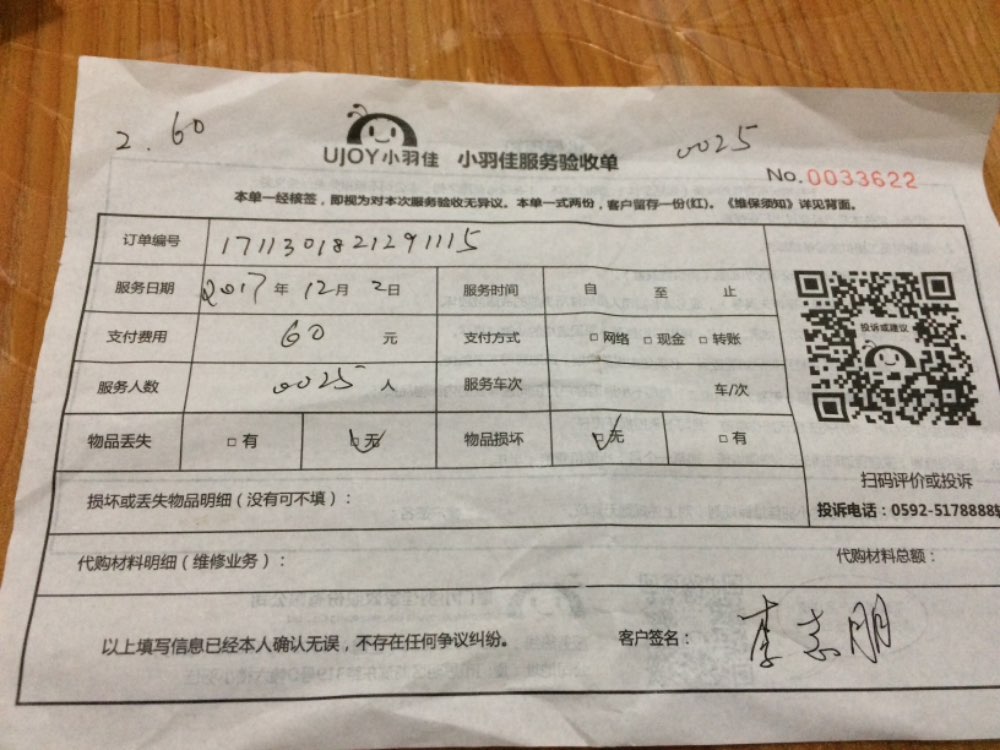 2. 60
0025
UJOY小羽佳 小羽佳服务验收单
No.0033622
本单一经核签，即视为对本次服务验收无异议。本单一式两份，客户留存一份(红)。《维保须知》详见背面。
订单编号 171130182129 1115
服务日期 2017年12月2日 服务时间 自 至 止
投诉或建议
支付费用 60 元 支付方式 □网络 □现金 □转账
服务人数 0025 人 服务车次 车/次
物品丢失 □有 □无 物品损坏 □无 □有
扫码评价或投诉
损坏或丢失物品明细（没有可不填）：
投诉电话：0592-5178888转
代购材料明细（维修业务）： 代购材料总额：
以上填写信息已经本人确认无误，不存在任何争议纠纷。 客户签名： 李志朋